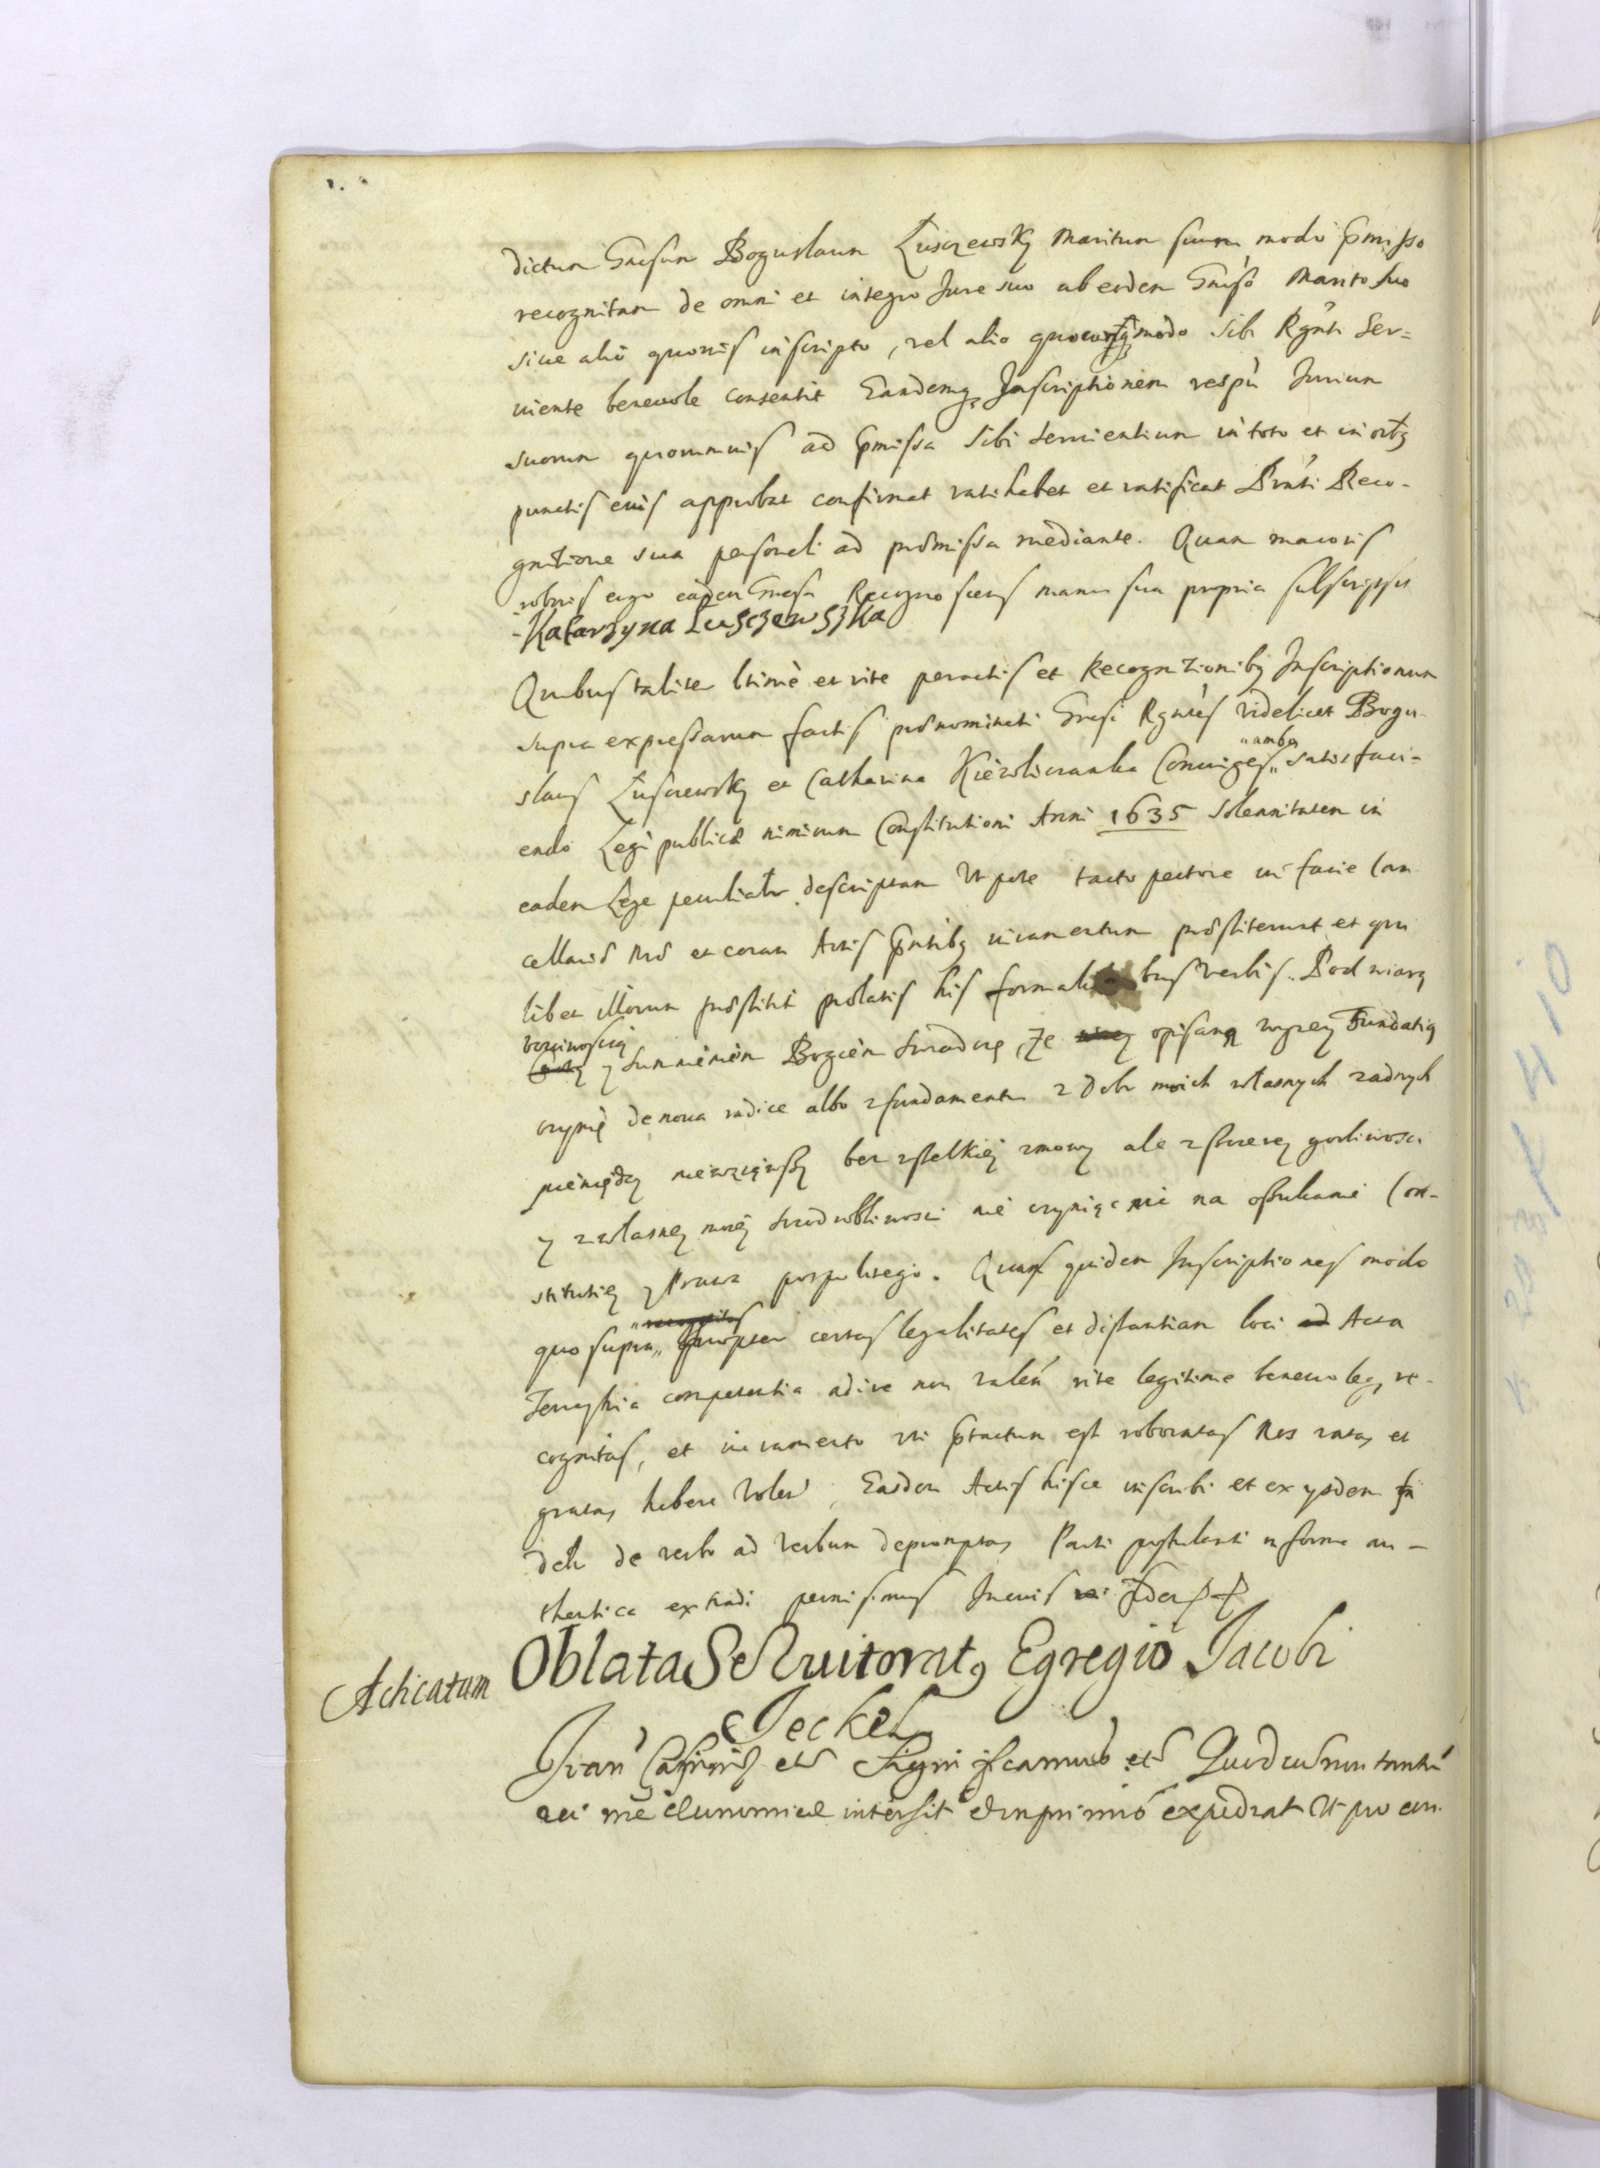 dictum Gnesum Boguslaum Lusczewsky Maritum suum modo pmisso
recognitam de omni et integro Jure suo ab eodem Gnoso Marito suo
siue alio quouis inscripto, vel alio quocunq modo sibi Rgnti ser=
uiente beneuole consentit Eandemq Inscriptionem respu Jurium
suorum quorumuis ad pmissa sibi seruientium in toto et in oibq
punctis eius approbat confirmat ratihabet et ratificat Pnti Reco-
gnitione sua personali ad promissa mediante. Quam maioris
roboris ergo eadem Gnosa Recognoscens manu sua propria subscripsit
Katarzyna Lusczewszka
Quibus taliter ltime et rite peractis et Recognitionibq Inscriptionum
supra expressarum factis prnominati Gnosi Rgntes videlicet Bogu-
slaus Lusczewsky et Catharina Coniuges "ambo" satisfaci-
endo Legi publicæ nimirum Constitutioni Anni 1635 solennitatem in
eadem Lege peculiatr descriptam Ut pote tacto pectore in facie Can
cellariæ Nræ et coram Actis pntibq iuramentum præstiterunt et qui
libet illorum præstitit prolatis his formalibus verbis. Pod wiarą
vczciwoscią
y Sumnieniem Bozem swiadczę, Ze opisaną wyzey Fundatią
czynię de noua radice albo z fundamentu z Dobr moich własnych zadnych
pieniędzy niewziąwszy bez wszelkiey zmowy ale z szczerey gorliwosci
y z własney moiey szczodrobliwosci nie czyniąc nic na oszukanie Con-
stitutiey y Prawa pospolitego. Quas quidem Inscriptiones modo
quo supra propter certas legalitates et distantiam loci ad Acta
Terrestria competentia adire non valen rite legitime beneuoleq re-
cognitas, et iuramento vti ptactum est roboratas Nos ratas et
gratas habere volen, Easdem Actis hisce inscribi et ex ysdem fi
deli de verbo ad verbum depromptas Parti postulanti in forma au-
thentica extradi permisimus Juris
Acticatum
Oblata Seruitoratq Egregio Jacobi
Jeckel
Joan Casimirus etc Significamus etc Quod cum non tantu
rei intersit imprimis expediat Ut pro